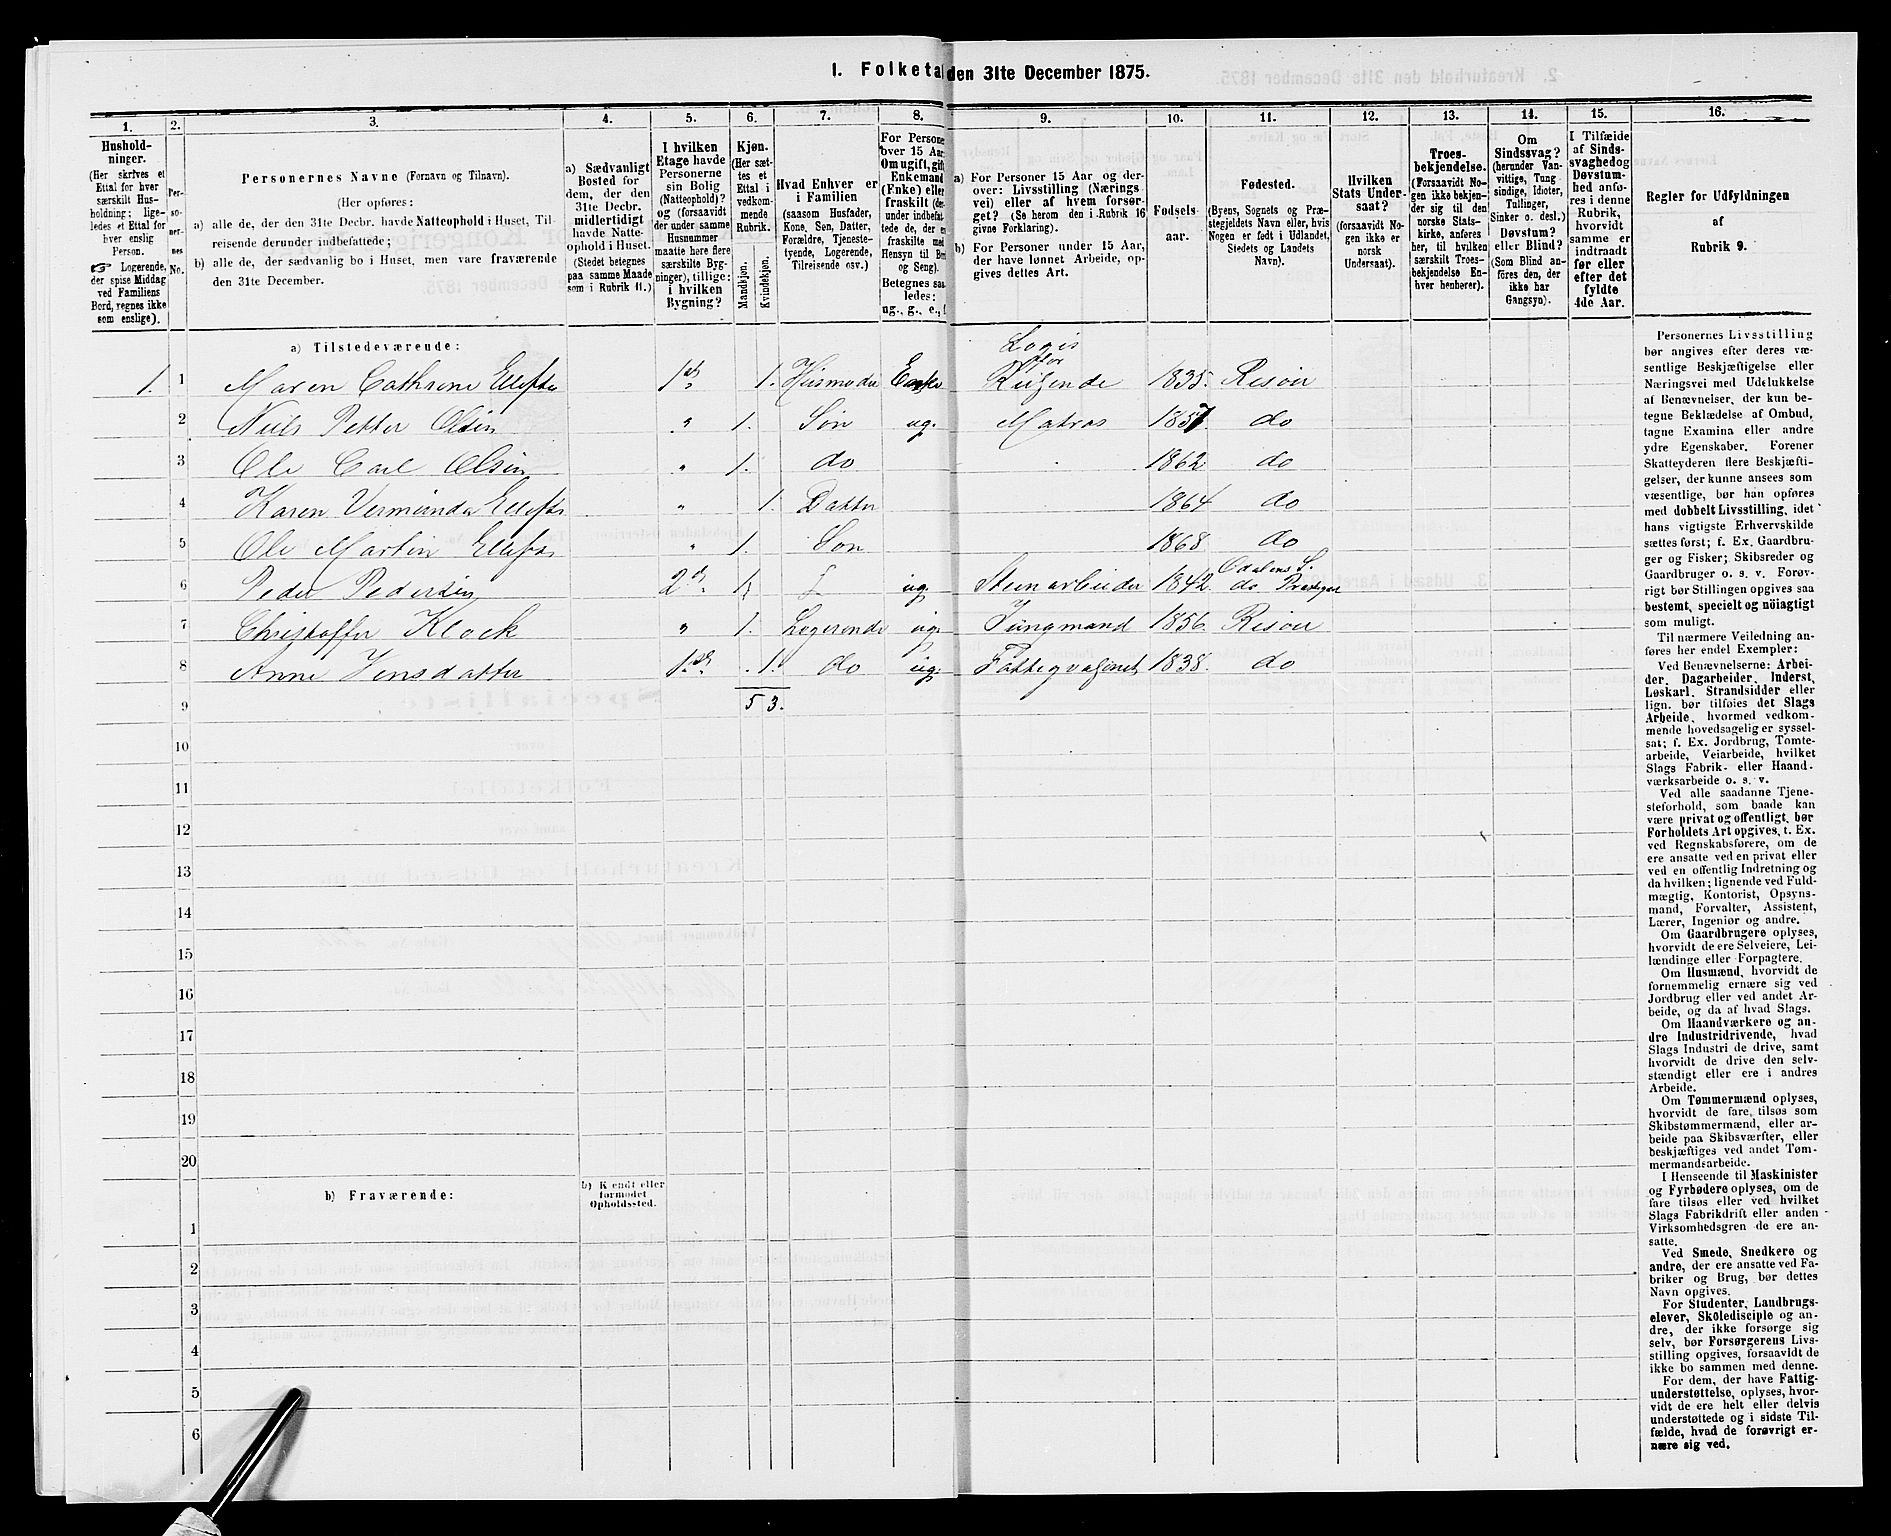 1. Folketal den 31te December 1875.
1. 2. 3. 4. 5. 6. 7. 8. 9. 10. 11. 12. 13. 14. 15. 16.
Hushold-
ninger.
(Her skrives et
Ettal for hver
særskilt Hus-
holdning; lige-
ledes et Ettal
for hver enslig
Person.
☞ Logerende,
der spise Middag
ved Familiens
Bord, regnes ikke
som enslige).
Per-
so-
ner-
nes
No.
Personernes Navne (Fornavn og Tilnavn).
(Her opføres:
a) alle de, der den 31te Decbr. havde Natteophold i Huset, Til-
reisende derunder indbefattede;
b) alle de, der sædvanlig bo i Huset, men vare fraværende
den 31te December.
a) Sædvanligt
Bosted for
dem, der den
31te Decbr.
midlertidigt
havde Natte-
ophold i Huset.
(Stedet betegnes
paa samme Maade
som i Rubrik 11.)
I hvilken
Etage havde
Personerne
sin Bolig
(Natteophold)?
og (forsaavidt
der under samme
Husnummer
maatte høre flere
særskilte Byg-
ninger), tillige:
i hvilken
Bygning?
Kjøn.
(Her sæt-
tes et
Ettal i
vedkom-
mende
Rubrik.
Mandkjøn.
Kvindekjøn.
Hvad Enhver er
i Familien
(saasom Husfader,
Kone, Søn, Datter,
Forældre, Tjeneste-
tyende, Logerende,
Tilreisende osv.)
For Persone
over 15 Aar
Om ugift, gift
Enkemand
(Enke) eller
fraskilt (der-
under indbefat-
tede de, der e
fraskilte med
Hensyn til Bo
og Seng).
Betegnes saa-
ledes:
ug., g., e., f.
a) For Personer 15 Aar og der-
over: Livsstilling (Nærings-
vei) eller af hvem forsør-
get? (Se herom den i Rubrik 16
givne Forklaring).
b) For Personer under 15 Aar,
der have lønnet Arbeide, op-
gives dettes Art.
Fødsels
aar.
Fødested.
(Byens, Sognets og Præ-
stegjeldets Navn eller, hvis
Nogen er født i Udlandet,
Stedets og Landets
Navn).
Hvilken
Stats Under-
saat?
(forsaavidt No-
gen ikke er
norsk
Undersaat).
Troes-
bekjendelse.
(Forsaavidt No-
gen ikke bekjen-
der sig til den
norske Stats-
kirke, anføres
her, til hvilken
særskilt Troes-
bekjendelse En-
hver henhører).
Om
Sindssvag?
(herunder Van-
vittige, Tung-
sindige, Idioter,
Tullinger,
Sinker o. desl.)
Døvstum?
eller Blind?
(Som Blind an-
føres den, der
ikke har
Gangsyn).
I Tilfælde
af Sinds-
svaghed og
Døvstum-
hed anfø-
res i denne
Rubrik,
hvorvidt
samme er
indtraadt
før eller
efter det
fyldte
4de Aar.
Regler for Udfyldningen
af
Rubrik 9.
a) Tilstedeværende:
Logis
for
1. 1 Maren Cathrine Ellefs 1st 1. Husmoder Enke Reisende 1835. Risøer
2 Niels Petter Olsen " 1. Søn ug. Matros 1857. do
3 Ole Carl Olsen " 1. do 1862 do
4 Karen Verminda Ellefs " 1. Datter 1864 do
5 Ole Martin Ellefs " 1. Søn 1868 do
Odalens S.
6 Peder Pedersen 2d 1 L ug. Steinarbeider 1842. do Prstegj
7 Christoffer Klock " 1. Logerende ug. Jungmand 1856. Risøer
8 Anne Jensdatter 1st 1. do ug. Fattigvæsenet 1838. do
9 5 3.
10
11
12
13
14
15
16
17
18
19
20
b) Fraværende:
b) Kjendt eller
formodet
Opholdssted.
1
2
3
4
5
6
Personernes Livsstilling
bør angives efter deres væ-
sentlige Beskjæftigelse eller
Næringsvei med Udelukkelse
af Benævnelser, der kun be-
tegne Beklædelse af Ombud,
tagne Examina eller andre
ydre Egenskaber. Forener
Skatteyderen flere Beskjæfti-
gelser, der kunne ansees som
væsentlige, bør han opføres
med dobbelt Livsstilling, idet
hans vigtigste Erhvervskilde
sættes først; f. Ex. Gaardbru-
ger og Fisker; Skibsreder og
Gaardbruger o. s. v. Forøv-
rigt bør Stillingen opgives saa
bestemt, specielt og nöiagtigt
som muligt.
Til nærmere Veiledning an-
føres her endel Exempler:
Ved Benævnelserne: Arbei-
der, Dagarbeider, Inderst,
Løskarl, Strandsidder eller
lign. bør tilføies det Slags
Arbeide, hvormed vedkom-
mende hovedsagelig er syssel-
sat; f. Ex. Jordbrug, Tomte-
arbeide, Veiarbeide, hvilket
Slags Fabrik- eller Haand-
værksarbeide o. s. v.
Ved alle saadanne Tjene-
steforhold, som baade kan
være privat og offentligt, bør
Forholdets Art opgives, t. Ex.
ved Regnskabsførere, om de
ere ansatte ved en privat eller
ved en offentlig Indretning og
da hvilken; lignende ved Fuld-
mægtig, Kontorist, Opsyns-
mand, Forvalter, Assistent,
Lærer, Ingeniør og andre.
Om Gaardbrugere oplyses,
hvorvidt de ere Selveiere, Lei-
lændinge eller Forpagtere.
Om Husmænd, hvorvidt de
fornemmelig ernære sig ved
Jordbrug eller ved andet Ar-
beide, og da af hvad Slags.
Om Haandværkere og an-
dre Industridrivende, hvad
Slags Industri de drive, samt
hvorvidt de drive den selv-
stændigt eller ere i andres
Arbeide.
Om Tømmermænd oplyses,
hvorvidt de fare, tilsøs som
Skibstømmermænd, eller ar-
beide paa Skibsværfter, eller
beskjæftiges ved andet Tøm-
mermandsarbeide.
I Henseende til Maskinister
og Fyrbødere oplyses, om de
fare tilsøs eller ved hvilket
Slags Fabrikdrift eller anden
Virksomhedsgren de ere an-
satte.
Ved Smede, Snedkere og
andre, der ere ansatte ved Fa-
briker og Brug, bør dettes
Navn opgives.
For Studenter, Landbrugs-
elever, Skoledisciple og an-
dre, der ikke forsørge sig
selv, bør Forsørgerens Livs-
stilling opgives, forsaavidt de
ikke bo sammen med denne.
For dem, der have Fattig-
understøttelse, oplyses, hvor-
vidt de ere helt eller delvis
understøttede og i sidste Til-
fælde, hvad de forøvrigt er-
nære sig ved.